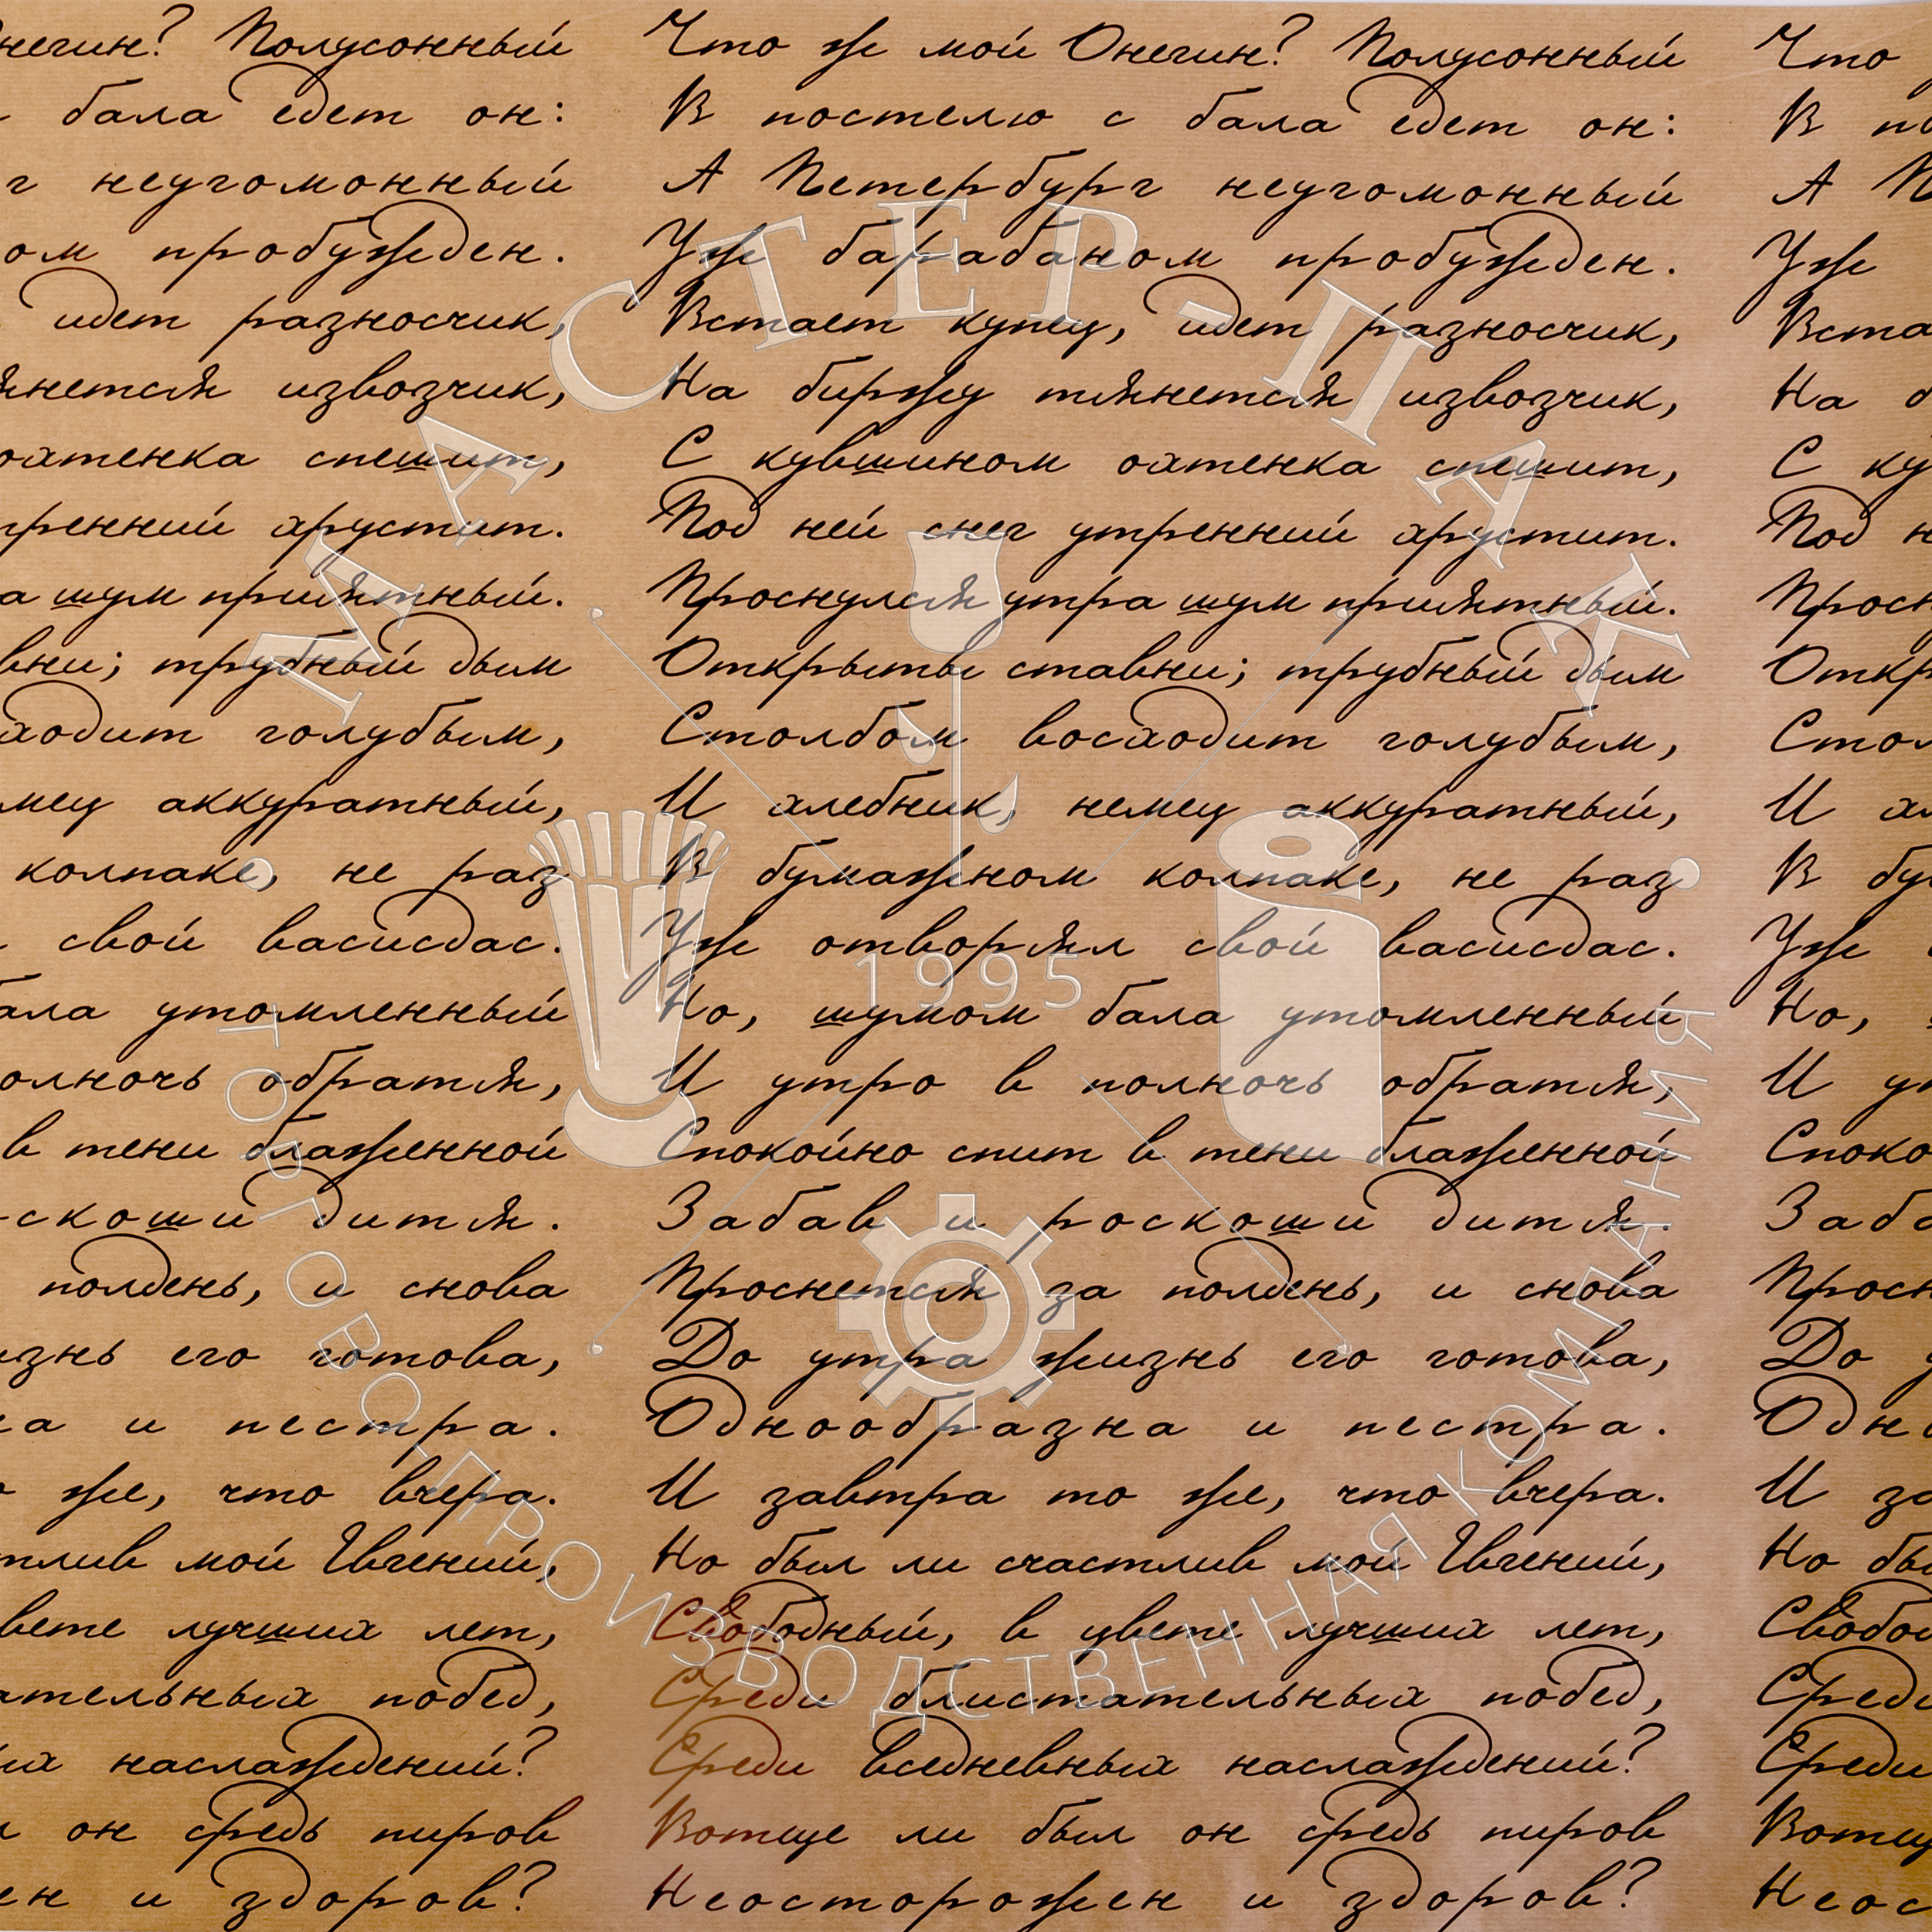 негин? Полусонный
бала едет он:
г неугомонный
ом пробужден.
идет разносчик,
янется извозчик,
охтенка спешит,
тренний хрустит.
а шум приятный.
вни; трубный дым
ходит голубым,
мец аккуратный,
колпаке, не раз
свой васисдас.
ала утомленный
олночь обратя,
в тени блаженной
скоши дитя.
полдень, и снова
изнь его готова,
на и пестра.
же, что вчера.
тлив мой Евгений,
вете лучших лет,
ательных побед,
ых наслаждений?
он средь пиров
ен и здоров?
Что ж мой Онегин? Полусонный
В постелю с бала едет он:
А Петербург неугомонный
Уж барабаном пробужден.
Встает купец, идет разносчик,
На биржу тянется извозчик,
С кувшином охтенка спешит,
Под ней снег утренний хрустит.
Проснулся утра шум приятный.
Открыты ставни; трубный дым
Столбом восходит голубым,
И хлебник, немец аккуратный,
В бумажном колпаке, не раз
Уж отворял свой васисдас.
Но, шумом бала утомленный
И утро в полночь обратя,
Спокойно спит в тени блаженной
Забав и роскоши дитя.
Проснется за полдень, и снова
До утра жизнь его готова,
Однообразна и пестра.
И завтра то же, что вчера.
Но был ли счастлив мой Евгений,
Свободный, в цвете лучших лет,
Среди блистательных побед,
Среди вседневных наслаждений?
Вотще ли был он средь пиров
Неосторожен и здоров?
Что
В по
А П
Уж
Вста
На б
С ку
Под н
Просн
Откр
Стол
И хл
В бу
Уж
Но,
И ут
Споко
Заба
Просн
До у
Одно
И за
Но бы
Свобо
Среди
Среди
Вотщ
Неос
МАСТЕР-ПАК
1995
ТОРГОВО-ПРОИЗВОДСТВЕННАЯ КОМПАНИЯ